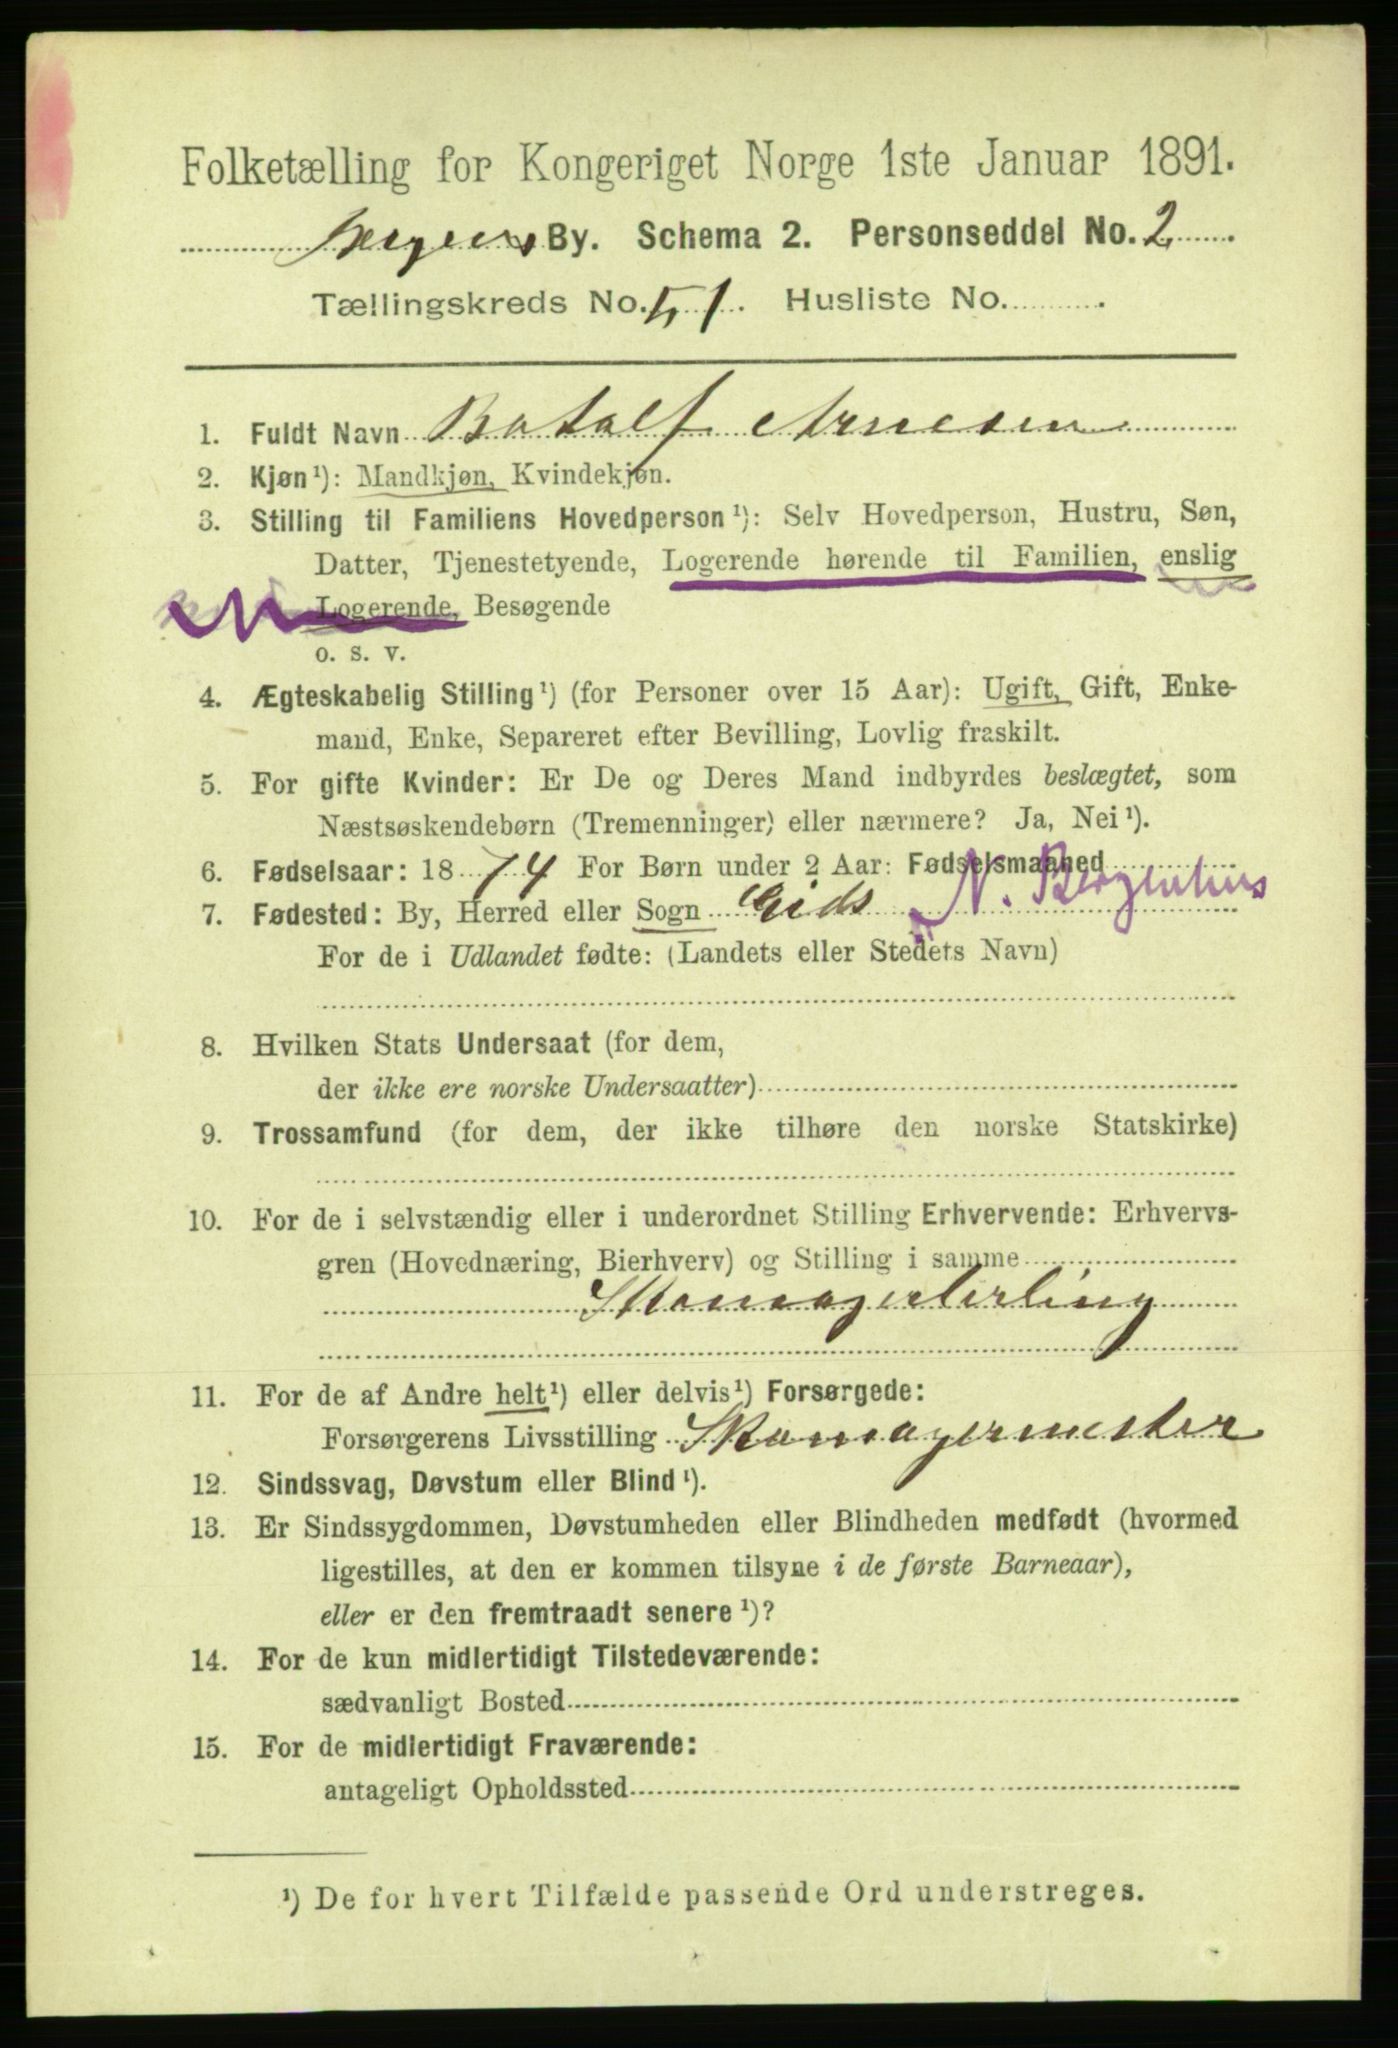 Folketælling for Kongeriget Norge 1ste Januar 1891.
Bergens By. Schema 2. Personseddel No. 2
Tællingskreds No. 51. Husliste No.
1. Fuldt Navn Botolf Arnesen
2. Kjøn¹): Mandkjøn, Kvindekjøn.
3. Stilling til Familiens Hovedperson¹): Selv Hovedperson, Hustru, Søn,
Datter, Tjenestetyende, Logerende hørende til Familien, enslig
Logerende, Besøgende
o. s. v.
4. Ægteskabelig Stilling¹) (for Personer over 15 Aar): Ugift, Gift, Enke-
mand, Enke, Separeret efter Bevilling, Lovlig fraskilt.
5. For gifte Kvinder: Er De og Deres Mand indbyrdes beslægtet, som
Næstsøskendebørn (Tremenninger) eller nærmere? Ja, Nei¹).
6. Fødselsaar: 1874 For Børn under 2 Aar: Fødselsmaaned
7. Fødested: By, Herred eller Sogn Eids N. Bergenhus
For de i Udlandet fødte: (Landets eller Stedets Navn)
8. Hvilken Stats Undersaat (for dem,
der ikke ere norske Undersaatter)
9. Trossamfund (for dem, der ikke tilhøre den norske Statskirke)
10. For de i selvstændig eller i underordnet Stilling Erhvervende: Erhvervs-
gren (Hovednæring, Bierhverv) og Stilling i samme
Skomagerlerling
11. For de af Andre helt¹) eller delvis¹) Forsørgede:
Forsørgerens Livsstilling Skomagermester
12. Sindssvag, Døvstum eller Blind¹).
13. Er Sindssygdommen, Døvstumheden eller Blindheden medfødt (hvormed
ligestilles, at den er kommen tilsyne i de første Barneaar),
eller er den fremtraadt senere¹)?
14. For de kun midlertidigt Tilstedeværende:
sædvanligt Bosted
15. For de midlertidigt Fraværende:
antageligt Opholdssted
¹) De for hvert Tilfælde passende Ord understreges.